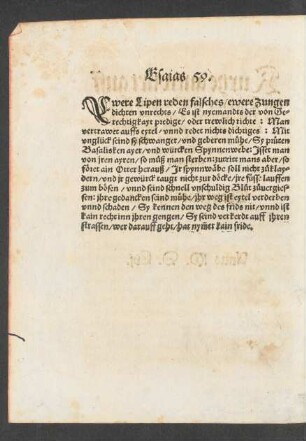 Esaias 59.
Ewere Lipen reden falsches / ewere Zungen
dichten vnrechts / Es ist nyemandts der von Ge-
rechtigkayt predige / oder trewlich richte : Man
vertrawet auffs eytel / vnnd redet nichts dichtiges : Mit
vnglück seind sy schwanger / vnd geberen mühe / Sy prüten
Basilisken ayer / vnd würcken Spynnenwebe : Isset man
von jren ayren / so müß man sterben : zutrit mans aber / so
föret ain Otter herauß / Jr spynnwäbe soll nicht zů klay-
dern / vnd jr gewürck taugt nicht zur döcke / jre füsse lauffen
zum bösen / vnnd seind schnell vnschuldig Blůt zůuergies-
sen : jhre gedancken sind mühe / jhr weg ist eytel verderben
vnnd schaden / Sy kennen den weg des frids nit / vnnd ist
kain recht inn jhren gengen / Sy seind verkerdt auff jhren
strassen / wer darauff geht / hat nymer kain fride.